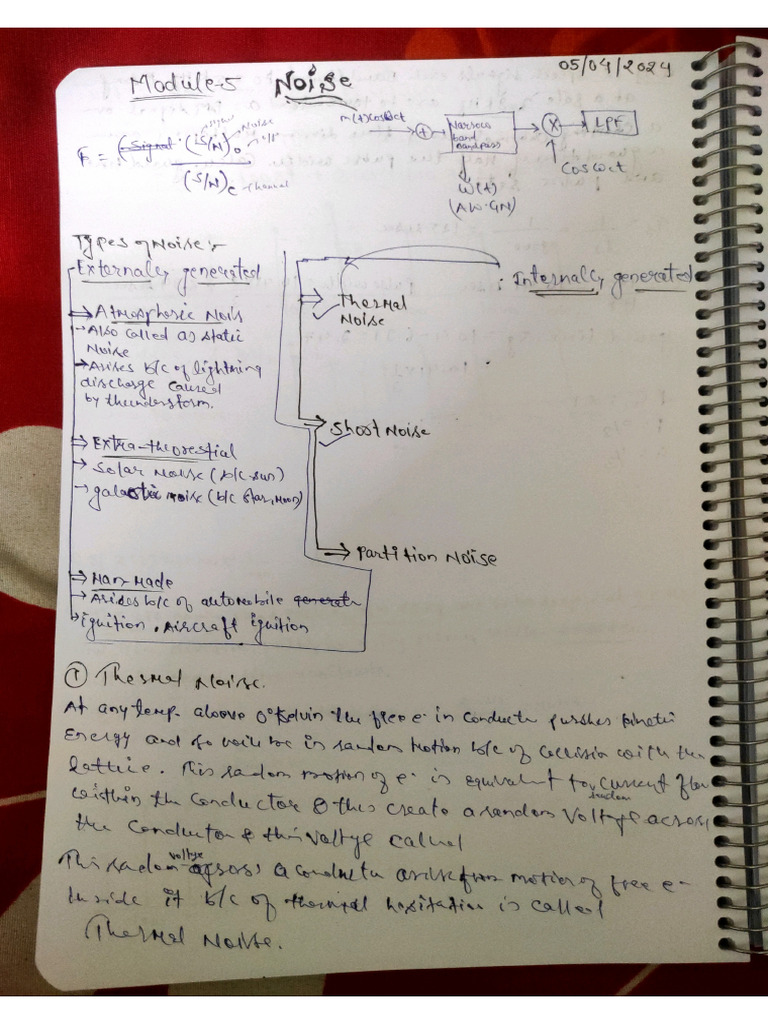 05/04/2024
Module-5 Noise
F = (S/N)o
(S/N)c
Signal
Noise
o/p
channel
m(t)cosωct
+
Narrow
band
bandpass
X
LPF
cosωct
W(t)
(AWGN)
Types of Noise :-
Externally generated
Internally generated
⇒ Atmospheric Nois
→ Also called as static
Noise
→ Arises b/c of lightning
discharge caused
by thunderstorm.
⇒ Extra-therestial
→ Solar Noise (b/c sun)
→ galactic noise (b/c star, Moon)
⇒ Man-Made
→ Arises b/c of automobile generate
→ ignition. Aircraft ignition
⇒ Thermal
Noise
⇒ Shoot Noise
⇒ Partition Noise
① Thermal Noise.
At any temp. above 0° Kelvin the free e- in conductor kinetic
Energy and so will be in random Motion b/c of Collision with the
lattice. This random motion of e- is equivalent to current flow
within the conductor & this create a random Voltage across
the conductor & this Voltge called
This random voltge across a conductor arise from motion of free e-
Inside it b/c of thermal is called
Thermal Noise.